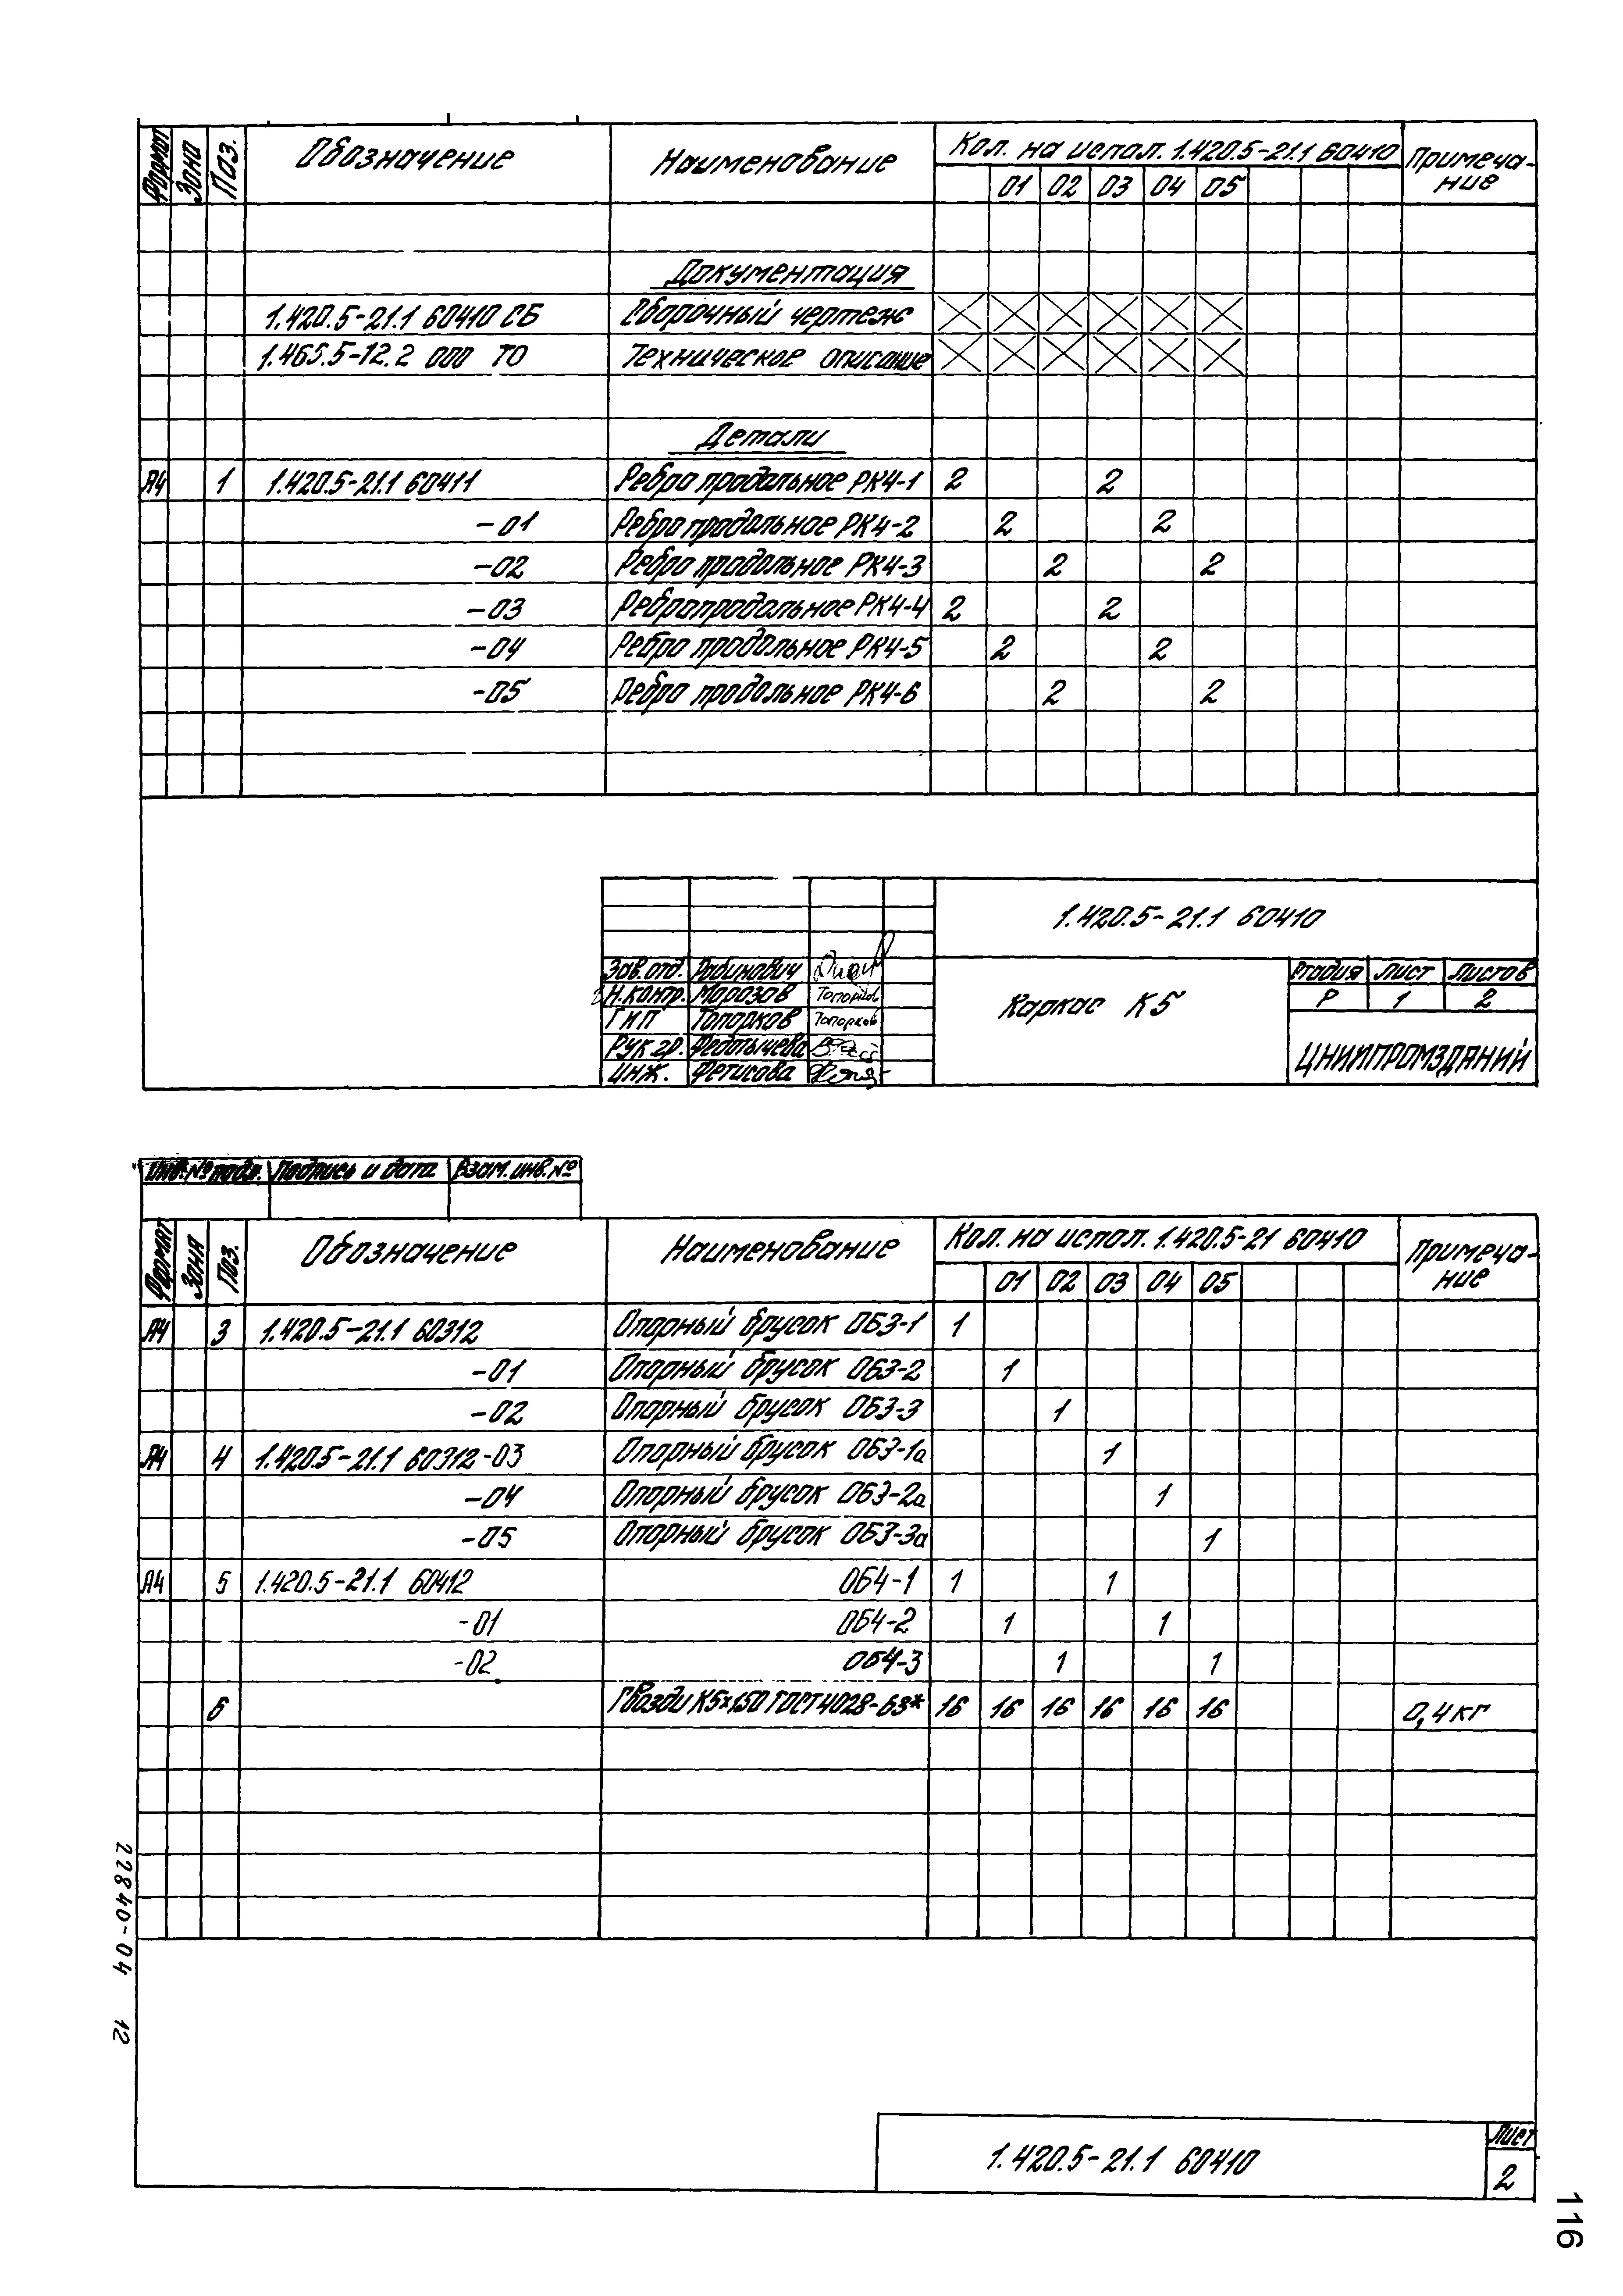 Формат Зона Поз. Обозначение Наименование Кол. на испол. 1.420.5-21.1 60410 Примеча-ние
01 02 03 04 05
Документация
1.420.5-21.1 60410 СБ Сборочный чертеж
1.465.5-12.2 000 ТО Техническое описание
Детали
А4 1 1.420.5-21.1 60411 Ребро продольное РК4-1 2 2
-01 Ребро продольное РК4-2 2 2
-02 Ребро продольное РК4-3 2 2
-03 Ребро продольное РК4-4 2 2
-04 Ребро продольное РК4-5 2 2
-05 Ребро продольное РК4-6 2 2
1.420.5-21.1 60410
Зав. отд. Рабинович
Н.контр. Морозов Топорков
ГИП Топорков Топорков
Рук гр. Федотычева
Инж. Фетисова
Каркас К5
Стадия Лист Листов
Р 1 2
ЦНИИПРОМЗДАНИЙ
Инв.№ подл. Подпись и дата Взам. инв.№
Формат Зона Поз. Обозначение Наименование Кол. на испол. 1.420.5-21 60410 Примеча-ние
01 02 03 04 05
А4 3 1.420.5-21.1 60312 Опорный брусок ОБ3-1 1
-01 Опорный брусок ОБ3-2 1
-02 Опорный брусок ОБ3-3 1
А4 4 1.420.5-21.1 60312-03 Опорный брусок ОБ3-1а 1
-04 Опорный брусок ОБ3-2а 1
-05 Опорный брусок ОБ3-3а 1
А4 5 1.420.5-21.1 60412 ОБ4-1 1 1
-01 ОБ4-2 1 1
-02 ОБ4-3 1 1
6 Гвозди К5х150 ГОСТ 4028-63* 16 16 16 16 16 16 0,4кг
22840-04 12
1.420.5-21.1 60410
Лист
2
116